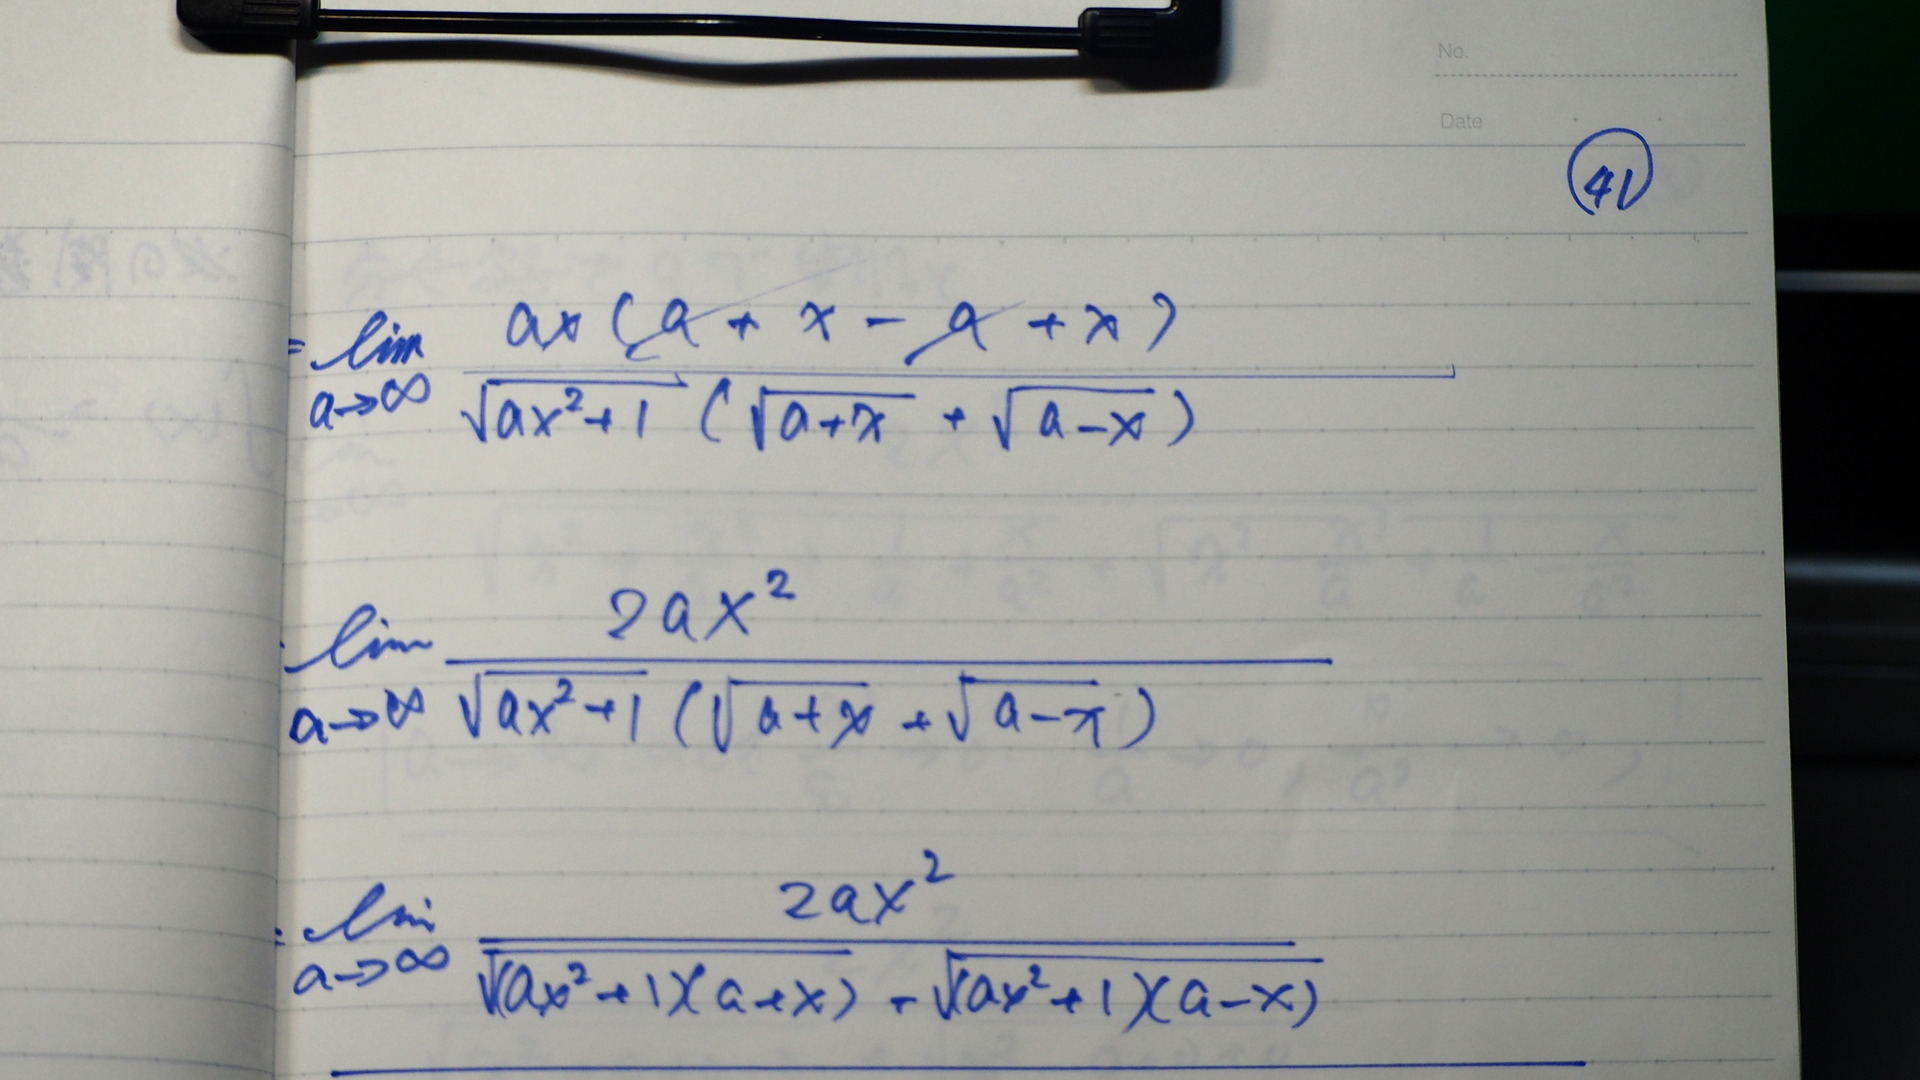 No.
Date
41
= lim a→∞ ax(a + x - a + x) / √ax²+1 (√a+x + √a-x)
lim a→∞ 2ax² / √ax²+1 (√a+x + √a-x)
= lim a→∞ 2ax² / √(ax²+1)(a+x) + √(ax²+1)(a-x)